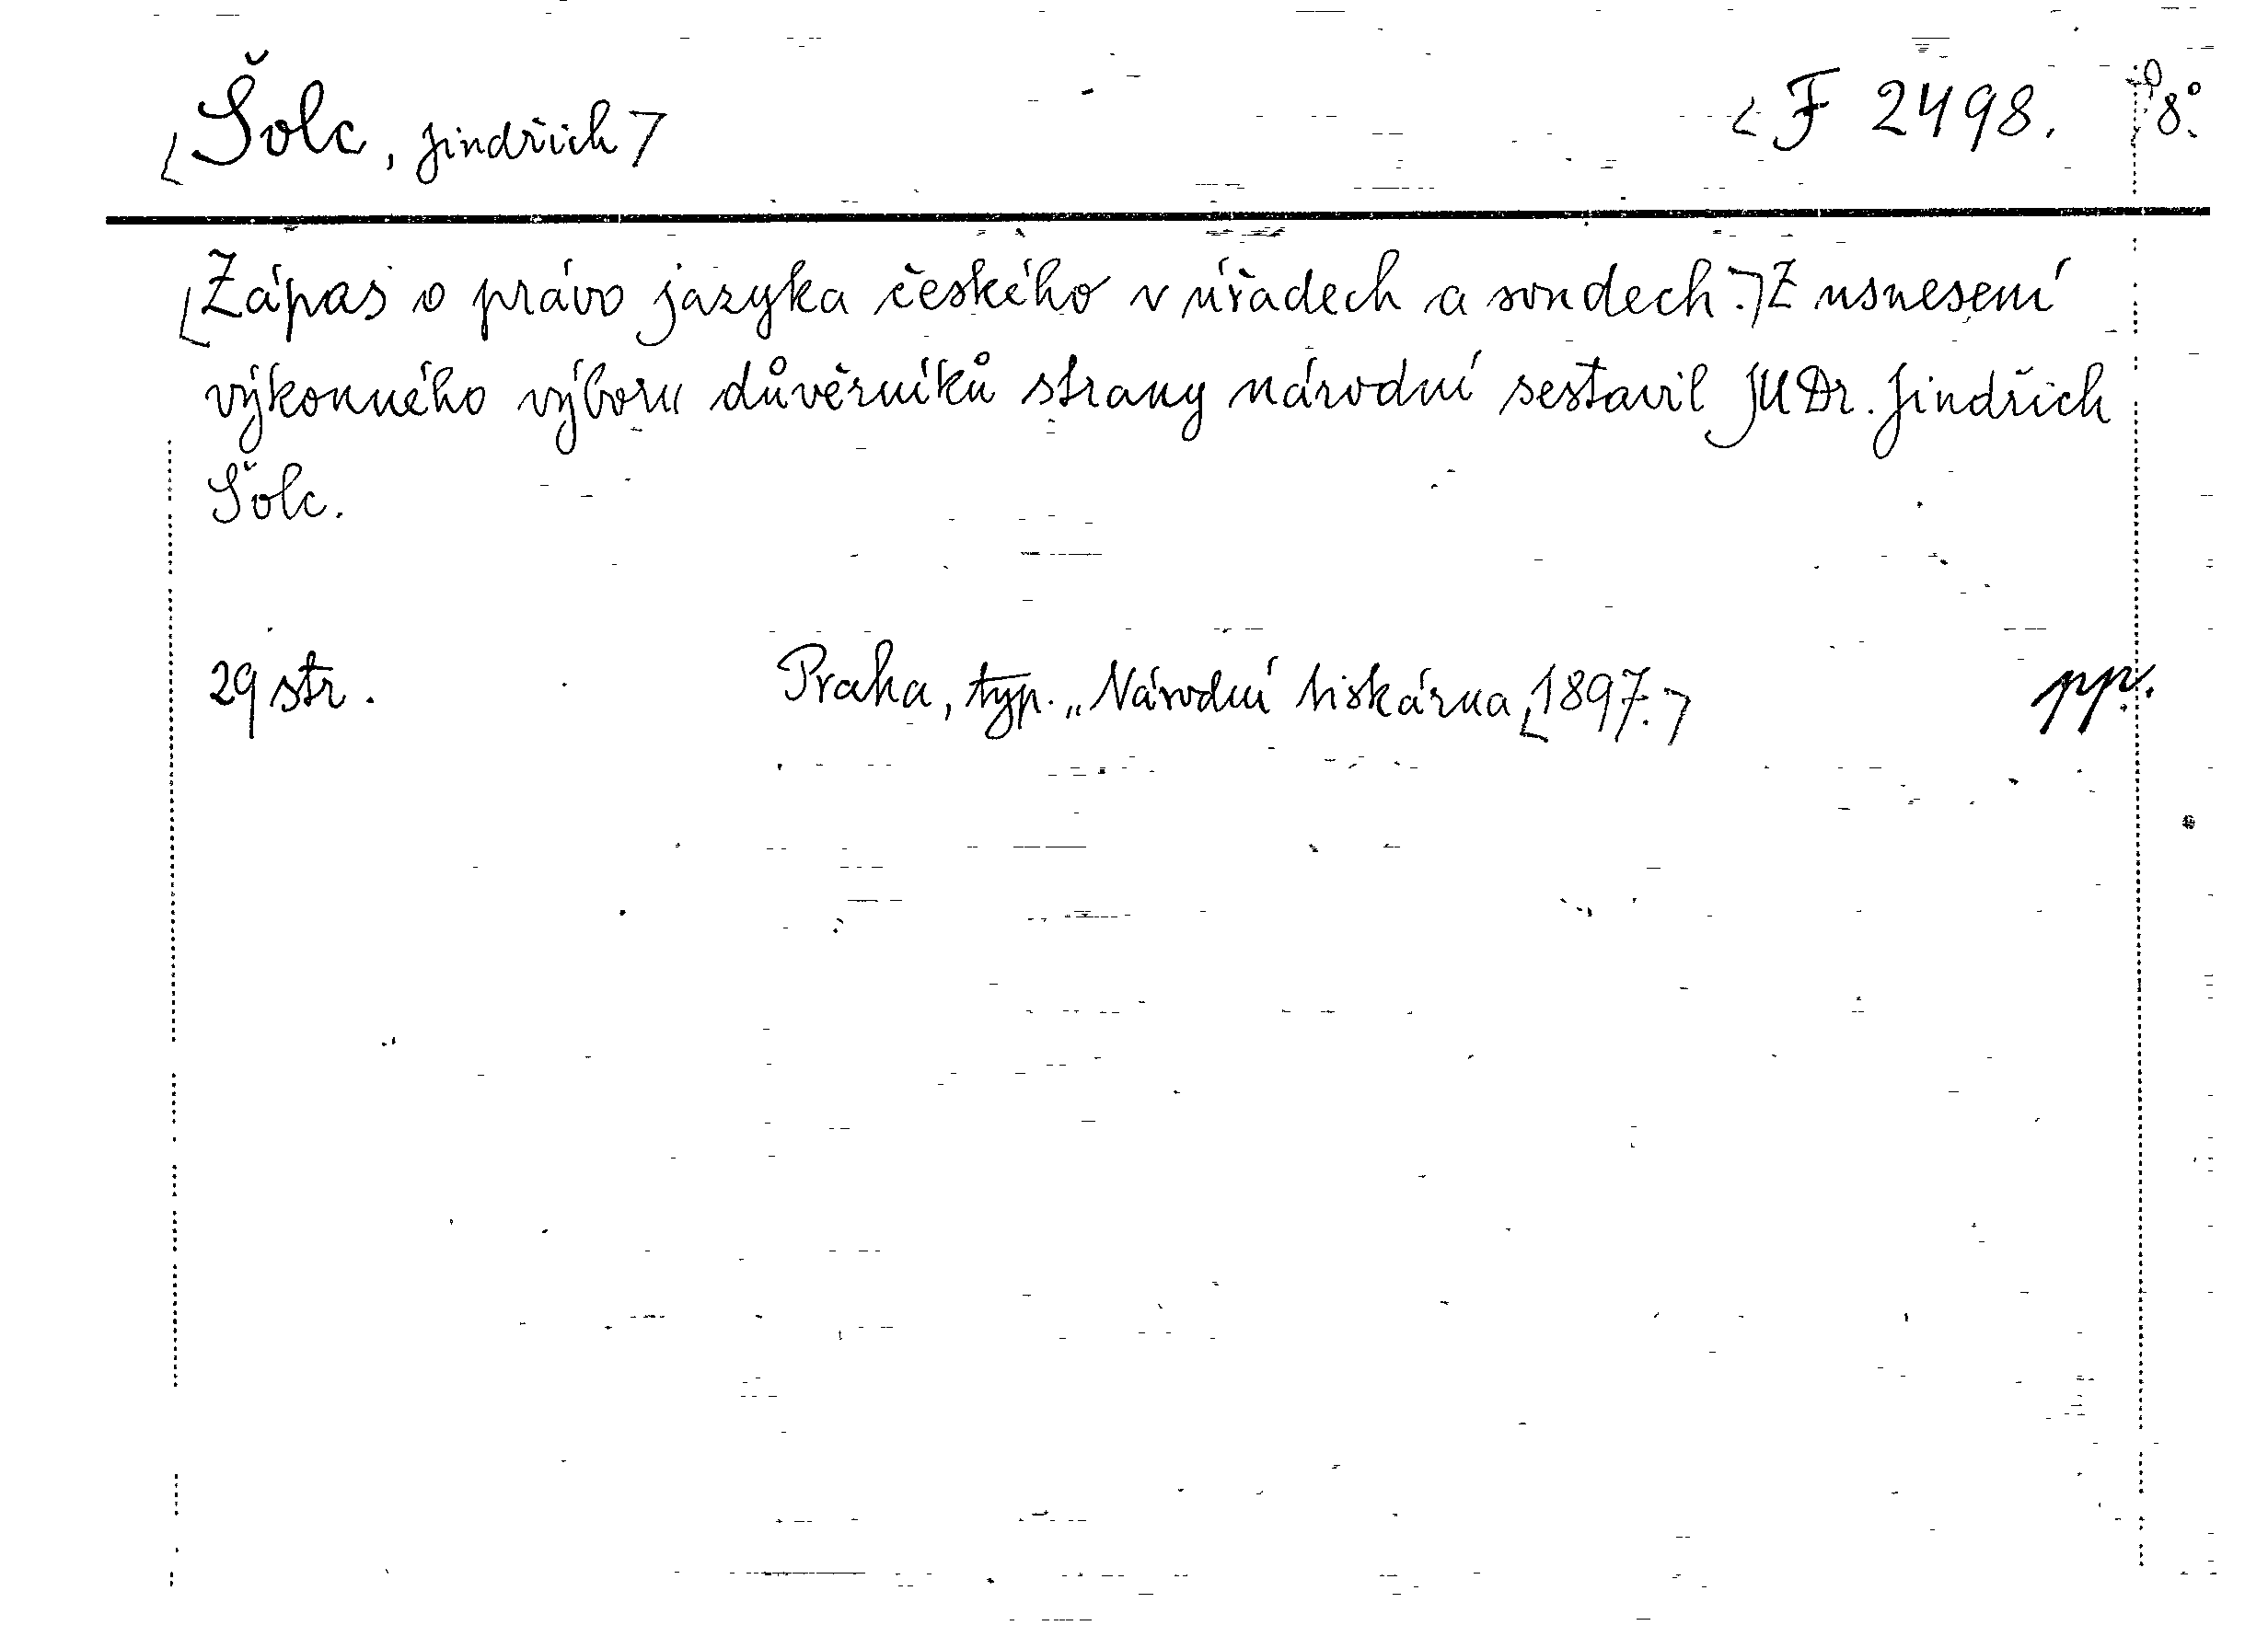 [Šolc, Jindřich] [F 2498. 8°.
[Zápas o právo jazyka českého v úřadech a soudech.] Z usnesení
výkonného výboru důvěrníků strany národní sestavil JUDr. Jindřich
Šolc.
29 str. Praha, typ. „Národní tiskárna [1897.] pp.